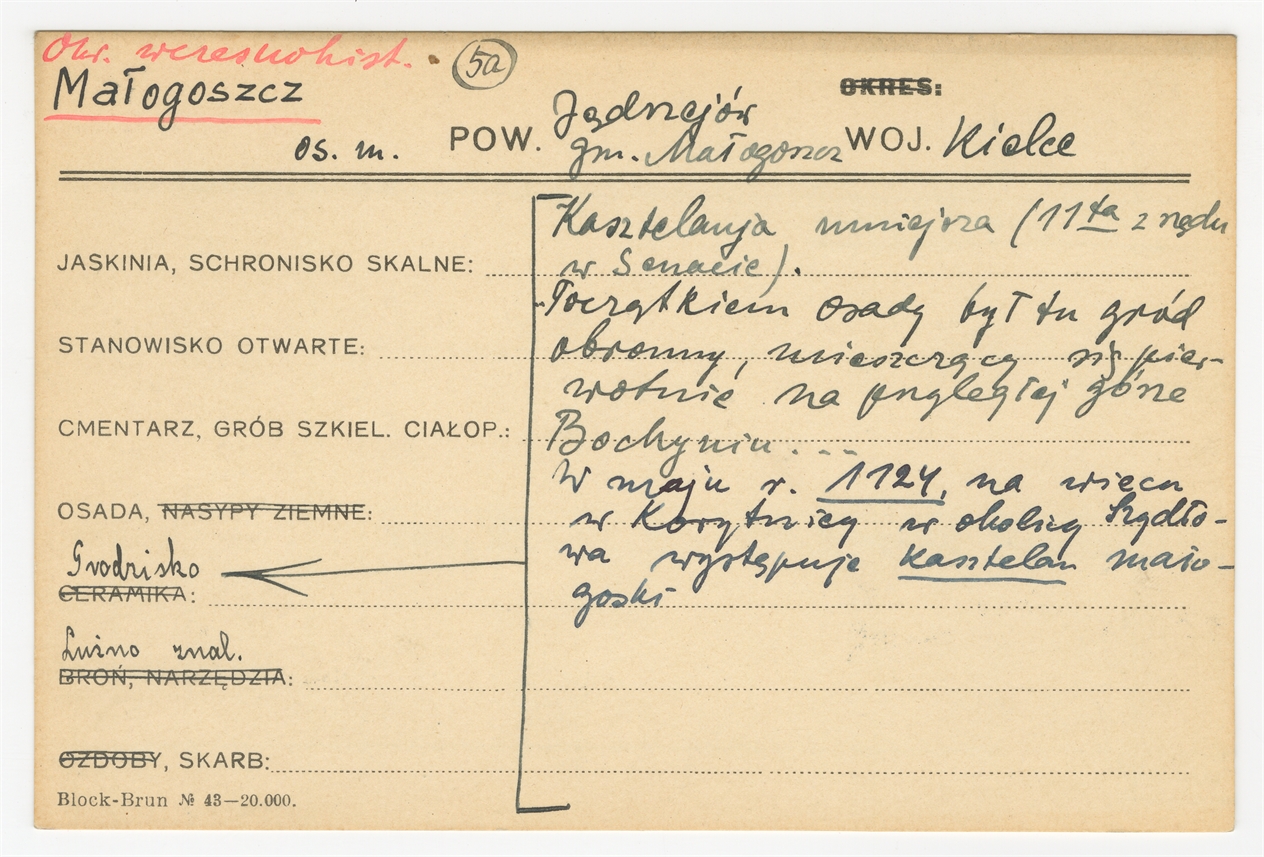 Okr. wczesnohist.
5a
Małogoszcz
OKRES:
os. m.
POW. Jędrzejów
gm. Małogoszcz
WOJ. Kielce
Kasztelanja mniejsza (11ta z rzędu
w Senacie).
JASKINIA, SCHRONISKO SKALNE:
Początkiem osady był tu gród
STANOWISKO OTWARTE:
obronny, mieszczący się pier-
wotnie na przyległej górze
CMENTARZ, GRÓB SZKIEL. CIAŁOP.:
Bochyniu...
W maju r. 1124, na wiecu
OSADA, NASYPY ZIEMNE:
w Korytnicy w okolicy Szydło-
wa występuje kasztelan mało-
goski
Grodzisko
CERAMIKA:
Luźno znal.
BROŃ, NARZĘDZIA:
OZDOBY, SKARB:
Block-Brun № 43—20.000.